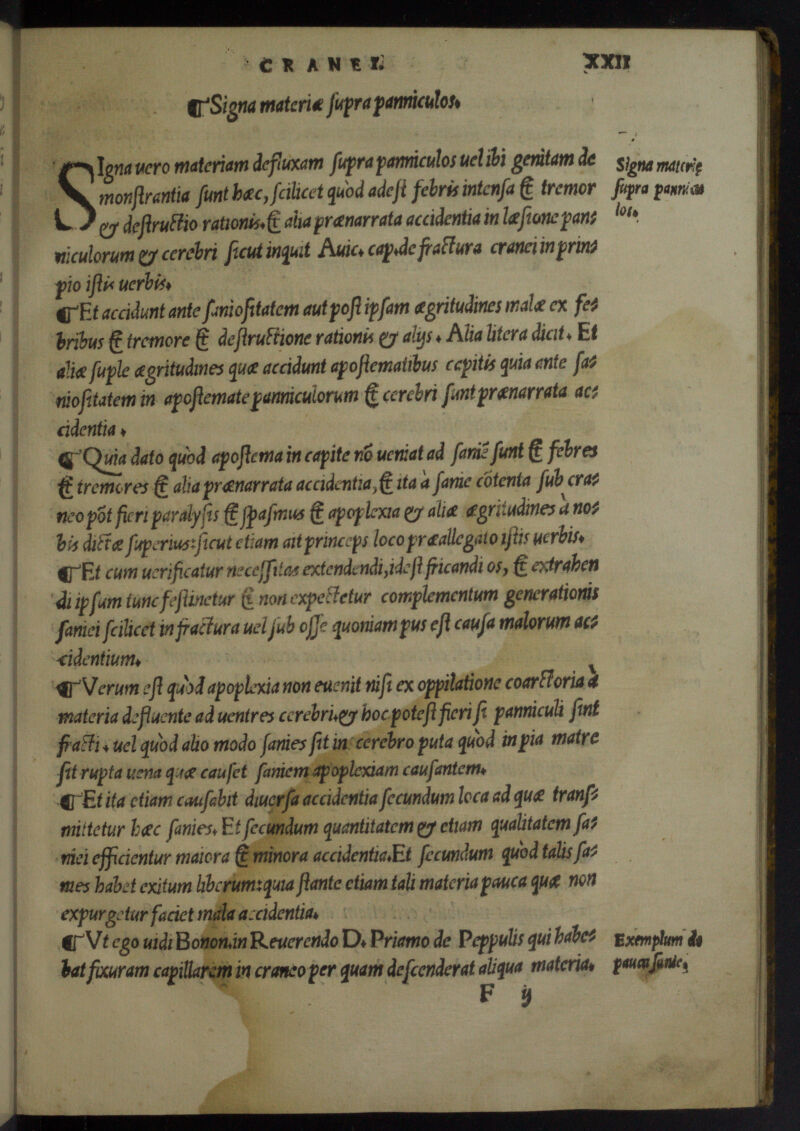 CRANEI. XXII
¶ Signa materiæ supra panniculos.
SIgna uero materiam defluxam supra panniculos uel ibi genitam de
monstrantia sunt hæc, scilicet quòd adest febris intensa & tremor
& destructio rationis. & alia prænarrata accidentia in læsione pan=
niculorum & cerebri sicut inquit Auic. cap. de fractura cranei in prin=
pio istis uerbis.
¶ Et accidunt ante saniositatem aut post ipsam ægritudines malæ ex fe=
bribus & tremore & destructione rationis & alijs. Alia litera dicit. Et
aliæ suple ægritudines quæ accidunt apostematibus capitis quia ante sa=
niositatem in apostemate panniculorum & cerebri sunt prænarrata ac=
cidentia.
¶ Quia dato quòd apostema in capite nõ ueniat ad saniẽ sunt & febres
& tremores & alia prænarrata accidentia, & ita à sanie cõtenta sub cra=
neo põt fieri paralysis & spasmus & apoplexia & aliæ ægritudines à no=
bis dictæ superius: sicut etiam ait princeps loco præallegato istis uerbis.
¶ Et cum uerificatur necessitas extendendi, idest fricandi os, & extrahen
di ipsum tunc festinetur & non expectetur complementum generationis
saniei scilicet in fractura uel sub osse quoniam pus est causa malorum ac=
cidentium.
¶ Verum est quòd apoplexia non euenit nisi ex oppilatione coarctoria à
materia defluente ad uentres cerebri. & hoc potest fieri si panniculi sint
fracti. uel quòd alio modo sanies sit in cerebro puta quòd in pia matre
sit rupta uena quæ causet saniem apoplexiam causantem.
¶ Et ita etiam causabit diuersa accidentia secundum loca ad quæ trans=
mittetur hæc sanies. Et secundum quantitatem & etiam qualitatem sa=
niei efficientur maiora & minora accidentia. Et secundum quòd talis sa=
nies habet exitum liberum: quia stante etiam tali materia pauca quæ non
expurgetur faciet mala accidentia.
¶ Vt ego uidi Bonon. in Reuerendo D. Priamo de Peppulis qui habe=
bat fixuram capillarem in craneo per quam descenderat aliqua materia.
F ij
Signa materię
supra pannicu
los.
Exemplum de
pauca sanie.